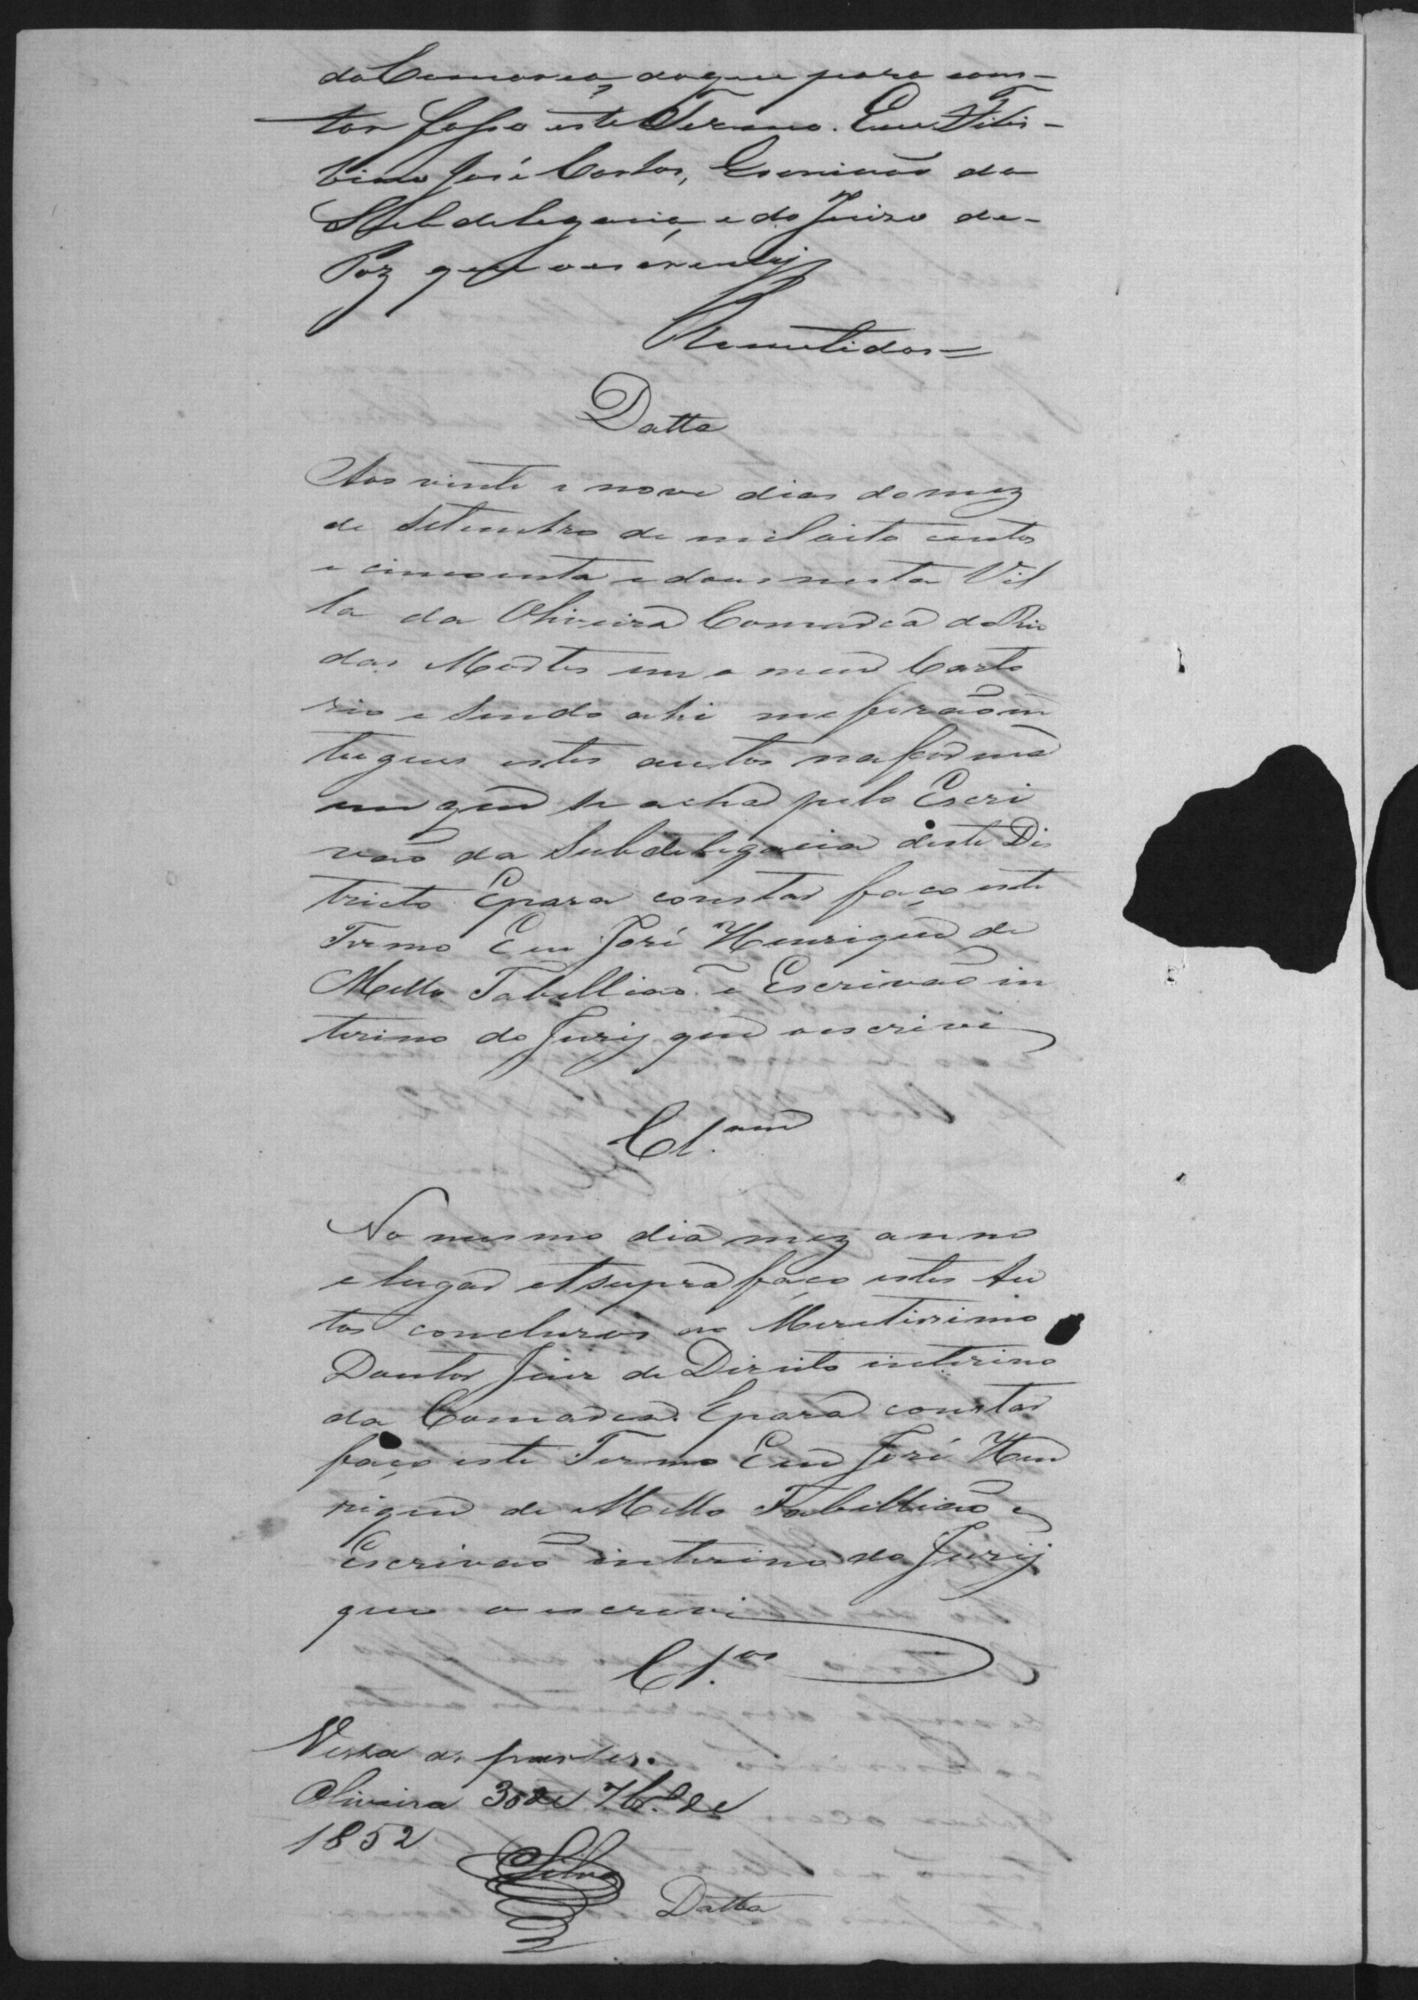 da Comarca, do que para cons-
tar fasso este Termo. Eu Filis-
bino José Carlos, Escrivão da
Subdelegacia, e do Juizo de-
Paz que o escrevy
Remetidos=
Datta
Aos vinte e nove dias do mez
de Setembro de mil oito centos
e cincoenta e dous nesta Vil
la da Oliveira Comarca do Rio
das Mortes em o meu Carto
rio e sendo ahi me forão en
tregues estes autos na forma
em que se acha pelo Escri
vão da Subdelegacia deste Dis
tricto E para constar faço este
Termo Eu José Henrique de
Mello Tabellião e Escrivão in
terino do Jury que o escrivi
Cl.am
No mesmo dia mez anno
e lugar et supra faço estes Au
tos conclusos ao Meretissimo
Doutor Juiz de Direito interino
da Comarca. E para constar
faço este Termo Eu José Hen
rique de Mello Tabellião e
Escrivão interino do Jury
que o escrevi
Cl.os
Vista as partes.
Oliveira 30 de 7br.o de
1852
Silva
Datta